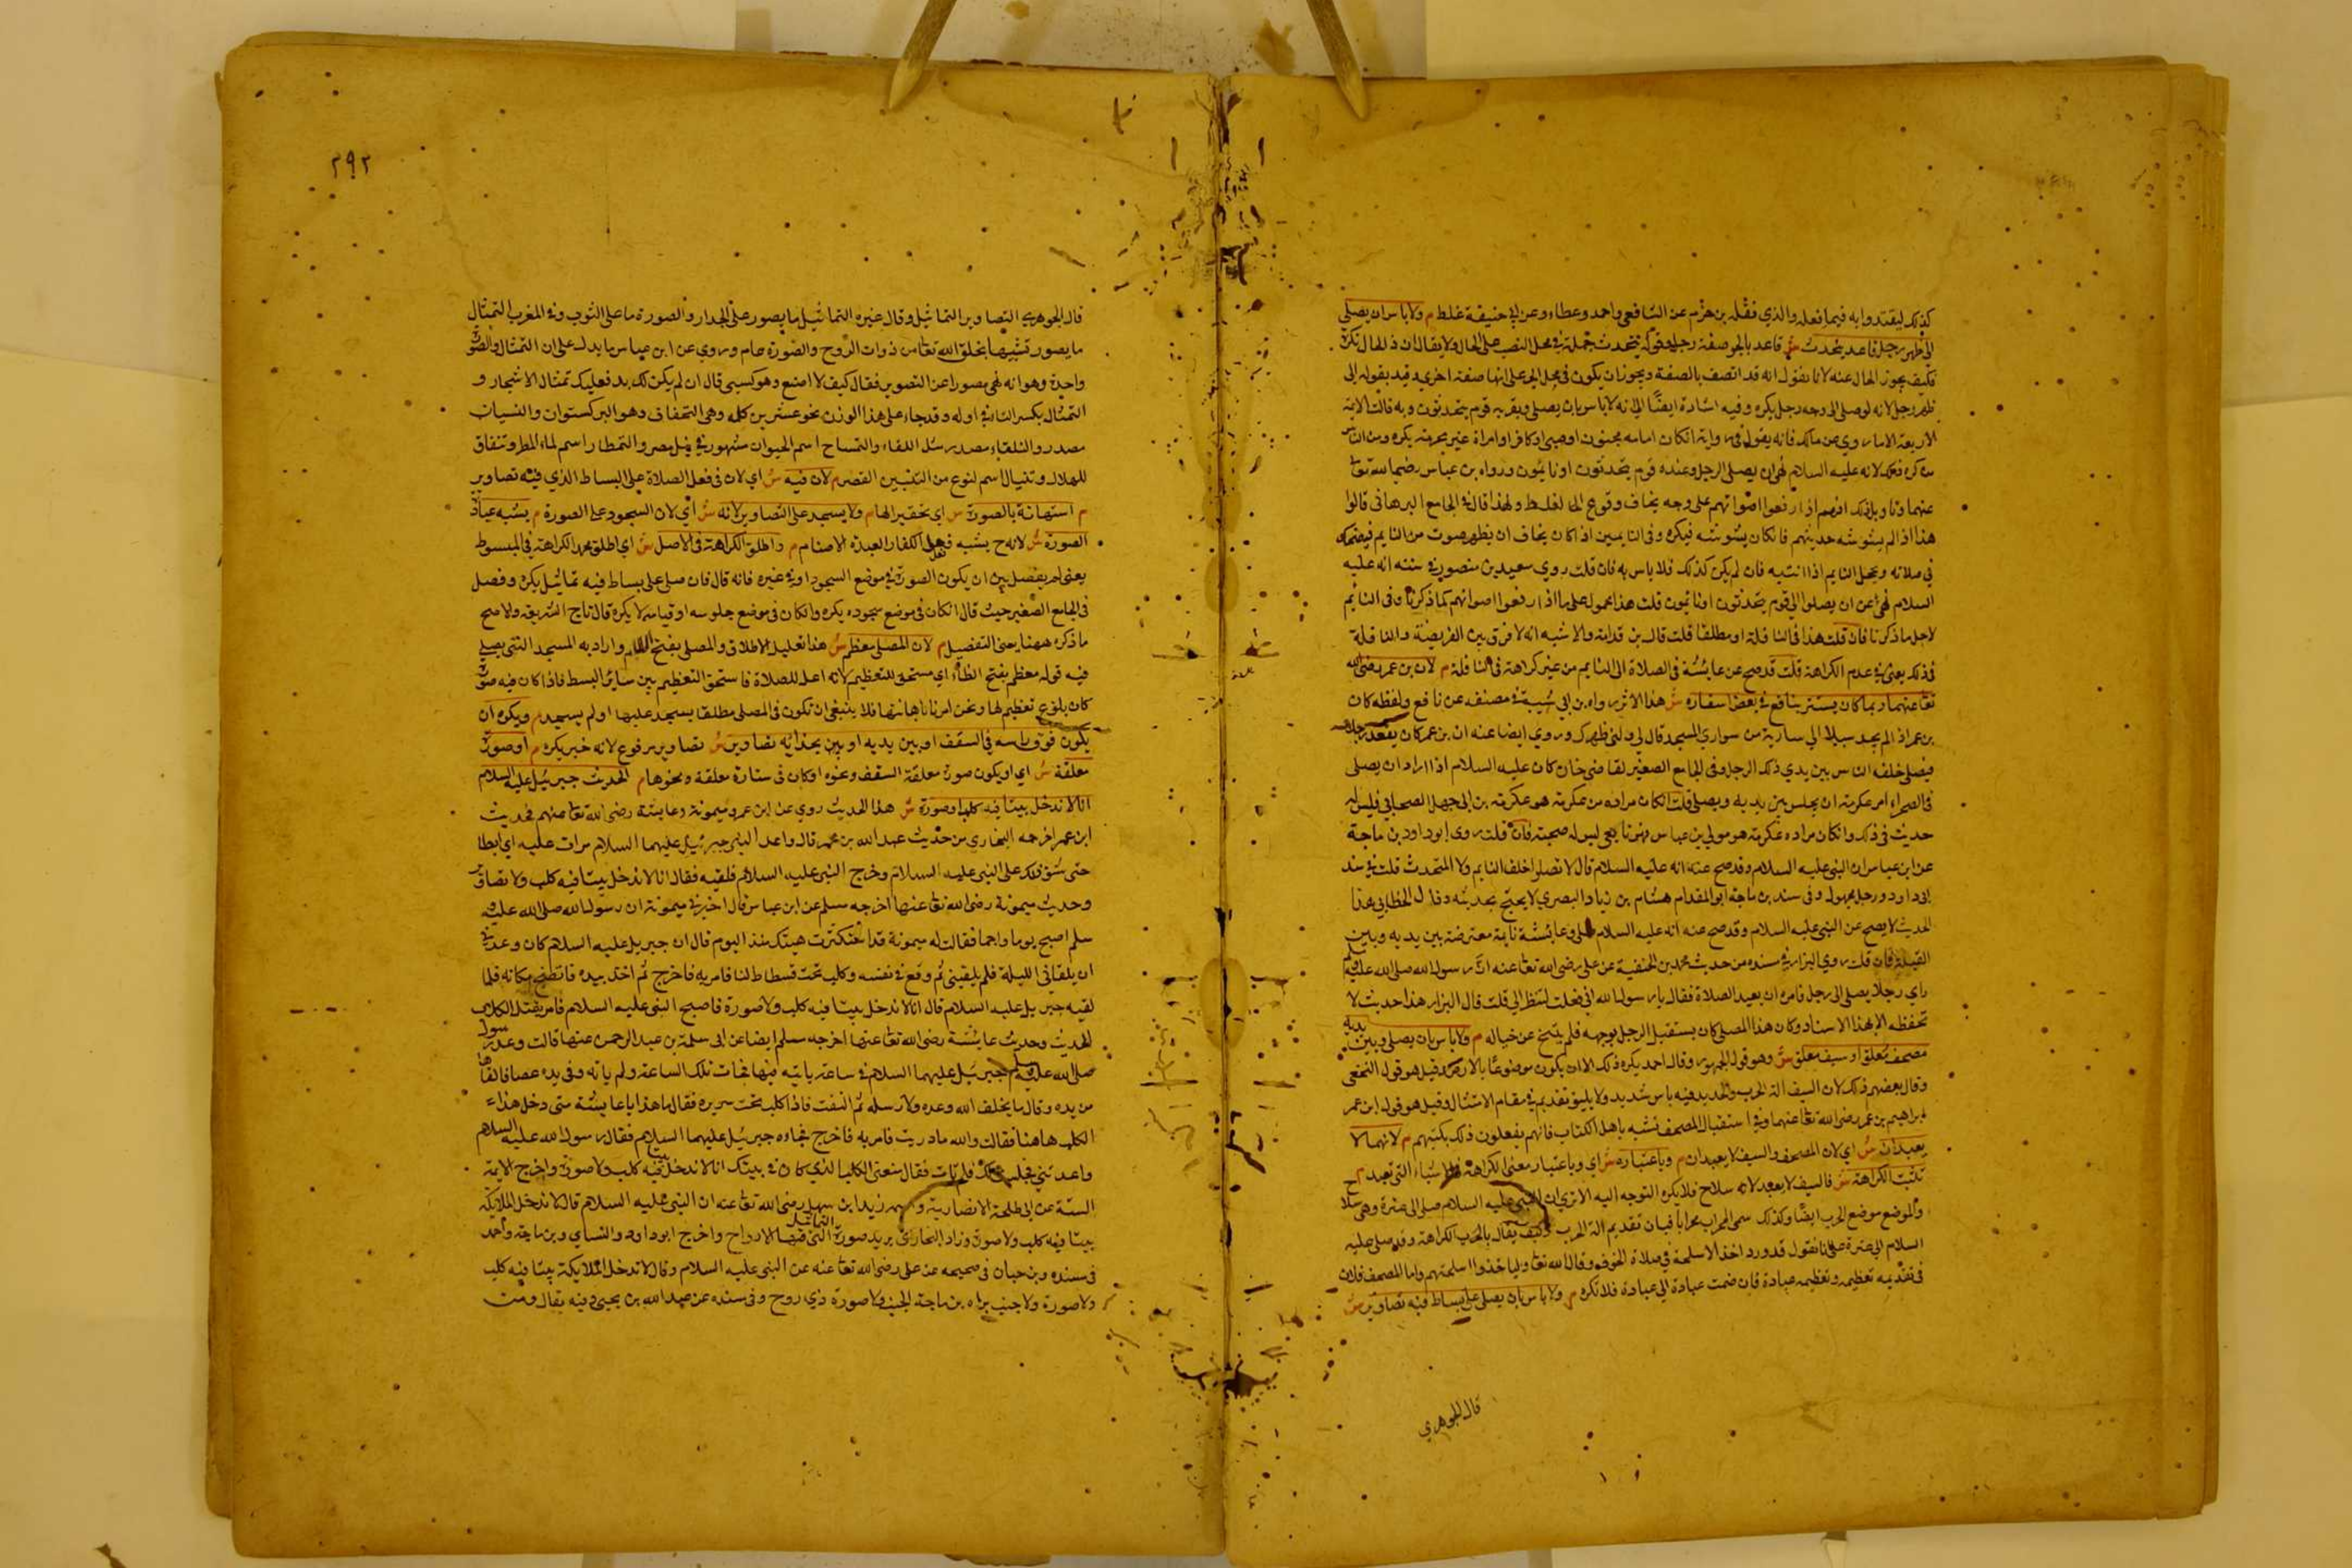 كذلك ليقتدوا به فيما فعله والذي فقله بن حزم عن الشافعي واحمد وعطاء وعن ابي حنيفة غلط م ولا باس ان يصلي
الى ظهر رجل قاعد يتحدث ش قاعد بالجر صفة رجل وقوله يتحدث جملة في محل النصب على الحال ولا يقال ان ذا الحال نكرة
فكيف يجوز الحال عنه لانا نقول انه قد اتصف بالصفة ويجوز ان يكون في محل الجر على انها صفة اخرى قيد بقوله الى
ظهر رجل لانه لو صلى الى وجه رجل يكره وفيه اشارة ايضا الى انه لا باس بان يصلي وبقربه قوم يتحدثون وبه قالت الايمة
الاربعة الا ما روي عن مالك فانه يقول في رواية ان كان امامه مجنون او صبي او كافر او امراة غير محرمة يكره ومن الناس
من كره ذلك لانه عليه السلام نهى ان يصلي الرجل وعنده قوم يتحدثون او نايمون ورواه بن عباس رضي الله تعا
عنهما وتاويل ذلك انهم اذا رفعوا اصواتهم على وجه يخاف وقوع الغلط ولهذا قال في الجامع البرهاني قالوا
هذا اذا لم يشوشه حديثهم فان كان يشوشه فيكره وفي النايمين اذا كان يخاف ان يظهر صوت من النايم فيضحك
في صلاته ويخجل النايم اذا انتبه فان لم يكن كذلك فلا باس به فان قلت روي سعيد بن منصور في سننه انه عليه
السلام نهى عن ان يصلوا الى قوم يتحدثون او نايمون قلت هذا محمول على ما اذا رفعوا اصواتهم كما ذكرنا وفي النايم
لاجل ما ذكرنا فان قلت هذا في النافلة او مطلقا قلت قال بن قدامة والاشبه انه لا فرق بين الفريضة والنافلة
في ذلك يعني في عدم الكراهة قلت قد صح عن عايشة في الصلاة الى النايم من غير كراهة في النافلة م لان بن عمر رضي الله
تعا عنهما ربما كان يستتر بنافع في بعض اسفاره ش هذا الاثر رواه بن ابي شيبة في مصنفه عن نافع ولفظه كان
بن عمر اذا لم يجد سبيلا الى سارية من سواري المسجد قال لي ولني ظهرك وروي ايضا عنه ان بن عمر كان يقعد رجلا
فيصلي خلفه الناس بين يدي ذلك الرجل وفي الجامع الصغير لقاضي خان كان عليه السلام اذا اراد ان يصلي
في الصحراء امر عكرمة ان يجلس بين يديه ويصلي قلت ان كان مراده من عكرمة هو عكرمة بن ابي جهل الصحابي فليس له
حديث في ذلك وان كان مراده عكرمة هو مولى بن عباس فهو تابعي ليس له صحبة فان قلت روى ابو داود بن ماجة
عن ابن عباس ان النبي عليه السلام وقد صح عنه انه عليه السلام قال لا تصلوا خلف النايم ولا المتحدث قلت في سند
ابي داود ورجل مجهول وفي سند بن ماجة ابو المقدام هشام بن زياد البصري لا يحتج بحديثه وقال الخطابي هذا
الحديث لا يصح عن النبي عليه السلام وقد صح عنه انه عليه السلام صلى وعايشة نايمة معترضة بين يديه وبين
القبلة فان قلت روي البزار في سنده من حديث محمد بن الحنفية عن علي رضي الله تعا عنه ان رسول الله صلى الله عليه وسلم
راي رجلا يصلي الى رجل فامره ان يعيد الصلاة فقال يا رسول الله اني فعلت لتنظر الي قلت قال البزار هذا حديث لا
تحفظه الا بهذا الاسناد وكان هذا المصلي كان يستقبل الرجل بوجهه فلم يتنح عن حياله م ولا باس بان يصلي وبين يديه
مصحف معلق او سيف معلق ش وهو قول الجمهور وقال احمد يكره ذلك الا ان يكون موضوعا بالارض قيل هو قول النخعي
وقال بعضهم ذلك لان السيف الة الحرب والحديد فيه باس شديد ولا يليق تقديمه في مقام الابتهال وقيل هو قول ابن عمر
ابراهيم بن عمر رضي الله تعا عنهما وفي استقبال المصحف تشبه باهل الكتاب فانهم يفعلون ذلك بكتبهم م لانهما لا
يعبدان ش اي لان المصحف والسيف لا يعبدان م وباعتباره ش اي وباعتبار معنى الكراهة في الاشياء التي تعبد م
تثبت الكراهة ش فالسيف لا يعبد لانه سلاح فلا يكره التوجه اليه الا ترى ان النبي عليه السلام صلى الى عنزة وهي سلاح
والموضع موضع الحرب ايضا وكذلك سمي المحراب محرابا فبان تقديم الة الحرب وكيف يقال بالحرب الكراهة وقد صلى عليه
السلام الى عنزة على انا نقول قد ورد اخذ الاسلحة في صلاة الخوف وقال الله تعا ولياخذوا اسلحتهم واما المصحف فلان
في تقديمه تعظيمه وتعظيمه عبادة فان ضمت عبادة الى عبادة فلا تكره م ولا باس بان يصلي على بساط فيه تصاوير ش
قال الجوهري
٢٩٢
قال الجوهري التصاوير التماثيل وقال غيره التماثيل ما يصور على الجدار والصورة ما على الثوب وفي المغرب التمثال
ما يصور تشبيها بخلق الله تعا من ذوات الروح والصورة عام وروي عن ابن عباس ما يدل على ان التمثال والصورة
واحدة وهو انه نهى مصورا عن التصوير فقال كيف لا اصنع وهو كسبي قال ان لم يكن لك بد فعليك تمثال الاشجار و
التمثال بكسر التاء في اوله وقد جاء على هذا الوزن نحو عشرين كلمة وهي التجفاف وهو البركستوان والتبيان
مصدر والتلقاء مصدر مثل اللقاء والتمساح اسم الحيوان مشهور في نيل مصر والتمطار اسم لماء المطر وتنفاق
للهلال وتنبال اسم لنوع من التنبين القصر م لان فيه ش اي لان في فعل الصلاة على البساط الذي فيه تصاوير
م استهانة بالصورة ش اي تحقير الها م ولا يسجد على التصاوير لانه ش اي لان السجود على الصورة م يشبه عبادة
الصورة ش لانه ح يشبه فعل الكفار العبدة الاصنام م واطلق الكراهة في الاصل ش اي اطلق محمد الكراهة في المبسوط
يعني لم يفصل بين ان يكون الصورة في موضع السجود او في غيره فانه قال فان صلى على بساط فيه تماثيل يكره وفصل
في الجامع الصغير حيث قال ان كان في موضع سجوده يكره وان كان في موضع جلوسه او قيامه لا يكره قال تاج الشريعة والاصح
ما ذكره ههنا يعني التفصيل م لان المصلى معظم ش هذا تعليل الاطلاق والمصلى بفتح اللام واراد به المسجد التي يصلي
فيه قوله معظم بفتح الظاء اي مستحق للتعظيم لانه اعد للصلاة فاستحق التعظيم بين ساير البسط فاذا كان فيه صورة
كان بلوغ تعظيم لها ونحن امرنا باهانتها فلا ينبغي ان تكون في المصلى مطلقا يسجد عليها او لم يسجد م ويكره ان
يكون فوق راسه في السقف او بين يديه او بين بحذائه تصاوير ش تصاوير مرفوع لانه خبر يكره م او صورة
معلقة ش اي او يكون صورة معلقة السقف ونحوه او كان في ستارة معلقة ونحوها م لحديث جبريل عليه السلام
انا لا ندخل بيتا فيه كلب او صورة ش هذا الحديث روي عن ابن عمر وميمونة وعايشة رضي الله تعا عنهم فحديث
ابن عمر اخرجه البخاري من حديث عبد الله بن عمر قال واعد النبي جبرئيل عليهما السلام مراث عليه اي ابطا
حتى شق ذلك على النبي عليه السلام وخرج النبي عليه السلام فلقيه فقال انا لا ندخل بيتا فيه كلب ولا تصاوير
وحديث ميمونة رضي الله تعا عنها اخرجه مسلم عن ابن عباس قال اخبرتني ميمونة ان رسول الله صلى الله عليه و
سلم اصبح يوما واجما فقالت له ميمونة قد استنكرت هيئتك منذ اليوم قال ان جبريل عليه السلام كان وعدني
ان يلقاني الليلة فلم يلقيني ثم وقع في نفسه وكلب تحت فسطاط لنا فامر به فاخرج ثم اخذ بيده فانضح مكانه فلما
لقيه جبريل عليه السلام قال انا لا ندخل بيتا فيه كلب ولا صورة فاصبح النبي عليه السلام فامر بقتل الكلاب
الحديث وحديث عايشة رضي الله تعا عنها اخرجه مسلم ايضا عن ابي سلمة بن عبد الرحمن عنها قالت وعد رسول
صلى الله عليه وسلم جبريل عليهما السلام في ساعة ياتيه فيها فجات تلك الساعة ولم ياته وفي يده عصا فالقاها
من يده وقال ما يخلف الله وعده ولا رسله ثم التفت فاذا كلب تحت سريره فقال ما هذا يا عايشة متى دخل هذا
الكلب هاهنا فقالت والله ما دريت فامر به فاخرج فجاءه جبريل عليهما السلام فقال رسول الله عليه السلام
واعدتني فجلست لك فلم تات فقال منعني الكلب الذي كان في بيتك انا لا ندخل بيتا فيه كلب ولا صورة واخرج الايمة
الستة عن ابي طلحة الانصارية واسمه زيد ابن سهل رضي الله تعا عنه ان النبي عليه السلام قال لا تدخل الملايكة
بيتا فيه كلب ولا صورة وزاد البخاري يريد صورة التماثيل التي فيها الارواح واخرج ابو داود والنساي وبن ماجة واحمد
في مسنده وبن حبان في صحيحه عن علي رضي الله تعا عنه عن النبي عليه السلام وقال لا تدخل الملايكة بيتا فيه كلب
ولا صورة ولا جنب براه بن ماجة الجنب ولا صورة ذي روح وفي سنده عن عبد الله بن يحيى وفيه يقال ومت